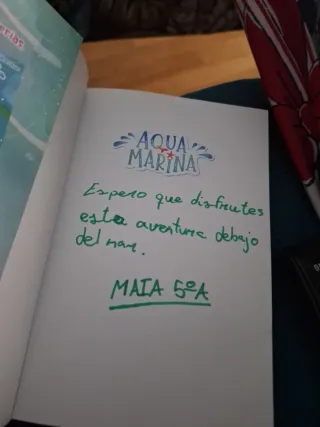 AQUA
MARINA
Espero que disfrutes
esta aventura debajo
del mar.
MAIA 5ºA